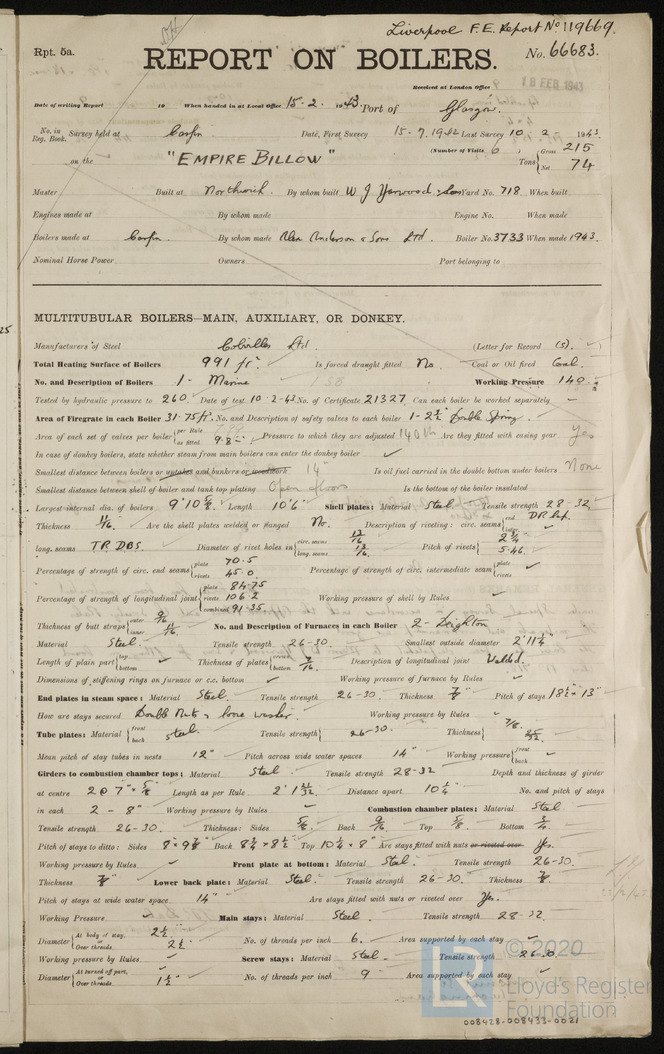 Liverpool F.E. Report No 119669.
Rpt. 5a.
REPORT ON BOILERS.
No. 66683.
Received at London Office
18 FEB 1943
Date of writing Report 19 When handed in at Local Office 15-2. 1943. Port of Glasgow.
No. in Reg. Book. Survey held at Carfin Date, First Survey 15-7.1942 Last Survey 10-2-1943
(Number of Visits 6)
on the "EMPIRE BILLOW" Tons { Gross 215 Net 74
Master Built at Northwich. By whom built W J Yarwood & Sons Yard No. 718. When built
Engines made at By whom made Engine No. When made
Boilers made at Carfin. By whom made Alex Anderson & Sons Ltd. Boiler No. 3733 When made 1943.
Nominal Horse Power Owners Port belonging to
MULTITUBULAR BOILERS—MAIN, AUXILIARY, OR DONKEY.
Manufacturers of Steel Colvilles Ltd. (Letter for Record (S).)
Total Heating Surface of Boilers 991 ft². Is forced draught fitted No. Coal or Oil fired Coal.
No. and Description of Boilers 1 - Marine SB Working Pressure 140
Tested by hydraulic pressure to 260. Date of test 10-2-43. No. of Certificate 21327. Can each boiler be worked separately ✓
Area of Firegrate in each Boiler 31.75 ft². No. and Description of safety valves to each boiler 1 - 2½" Double Spring.
Area of each set of valves per boiler { per Rule as fitted 9.8 Pressure to which they are adjusted 140 lb Are they fitted with easing gear Yes
In case of donkey boilers, state whether steam from main boilers can enter the donkey boiler ✓
Smallest distance between boilers or uptakes and bunkers or woodwork 14" Is oil fuel carried in the double bottom under boilers None
Smallest distance between shell of boiler and tank top plating Open floors Is the bottom of the boiler insulated
Largest internal dia. of boilers 9'10⅝" Length 10'6" Shell plates: Material Steel Tensile strength 28-32
Thickness 11/16. Are the shell plates welded or flanged No. Description of riveting: circ. seams { end D.R. Lap. inter.
long. seams T.R.D.B.S. Diameter of rivet holes in { circ. seams 13/16 long. seams 13/16. Pitch of rivets { 2¾ 5.46.
Percentage of strength of circ. end seams { plate 70.5 rivets 45.0 Percentage of strength of circ. intermediate seam { plate rivets ✓
Percentage of strength of longitudinal joint { plate 84.75 rivets 106.2 combined 91.35. Working pressure of shell by Rules ✓
Thickness of butt straps { outer 9/16 inner 11/16. No. and Description of Furnaces in each Boiler 2 - Deighton
Material Steel. Tensile strength 26-30. Smallest outside diameter 2'11¼"
Length of plain part { top bottom ✓ Thickness of plates { crown bottom 7/16. Description of longitudinal joint Welded.
Dimensions of stiffening rings on furnace or c.c. bottom ✓ Working pressure of furnace by Rules ✓
End plates in steam space: Material Steel. Tensile strength 26-30. Thickness ⅞" Pitch of stays 18½ × 13"
How are stays secured Double Nuts & loose washer. Working pressure by Rules ✓
Tube plates: Material { front back Steel. Tensile strength { 26-30. Thickness { 7/8. 25/32.
Mean pitch of stay tubes in nests 12" Pitch across wide water spaces 14" Working pressure { front back ✓
Girders to combustion chamber tops: Material Steel Tensile strength 28-32 Depth and thickness of girder
at centre 2 @ 7" × ⅝ Length as per Rule 2' 1 Distance apart 10¼ No. and pitch of stays
in each 2 - 8" Working pressure by Rules ✓ Combustion chamber plates: Material Steel
Tensile strength 26-30. Thickness: Sides ⅝ Back 9/16 Top ⅝ Bottom ¾
Pitch of stays to ditto: Sides 8" × 9⅜" Back 8¾ × 8½ Top 10¼ × 8" Are stays fitted with nuts or riveted over Yes.
Working pressure by Rules ✓ Front plate at bottom: Material Steel. Tensile strength 26-30.
Thickness ⅞" Lower back plate: Material Steel. Tensile strength 26-30. Thickness ⅞
Pitch of stays at wide water space 14" Are stays fitted with nuts or riveted over Yes.
Working Pressure ✓ Main stays: Material Steel. Tensile strength 28-32
Diameter { At body of stay, or Over threads. 2½. 2½ No. of threads per inch 6. Area supported by each stay ✓
Working pressure by Rules ✓ Screw stays: Material Steel. Tensile strength 26-30
Diameter { At turned off part, or Over threads. 1½" No. of threads per inch 9 Area supported by each stay ✓
© 2020
LR
Lloyd's Register
Foundation
008428-008433-0021